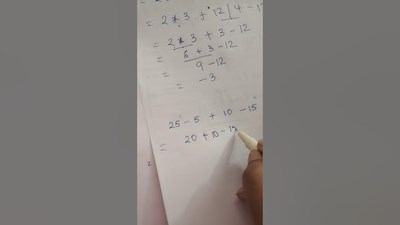 = 2 * 3 + 12 / 4 - 1
= 2 * 3 + 3 - 12
= 6 + 3 - 12
= 9 - 12
= - 3
25 - 5 + 10 - 15
= 20 + 10 - 15